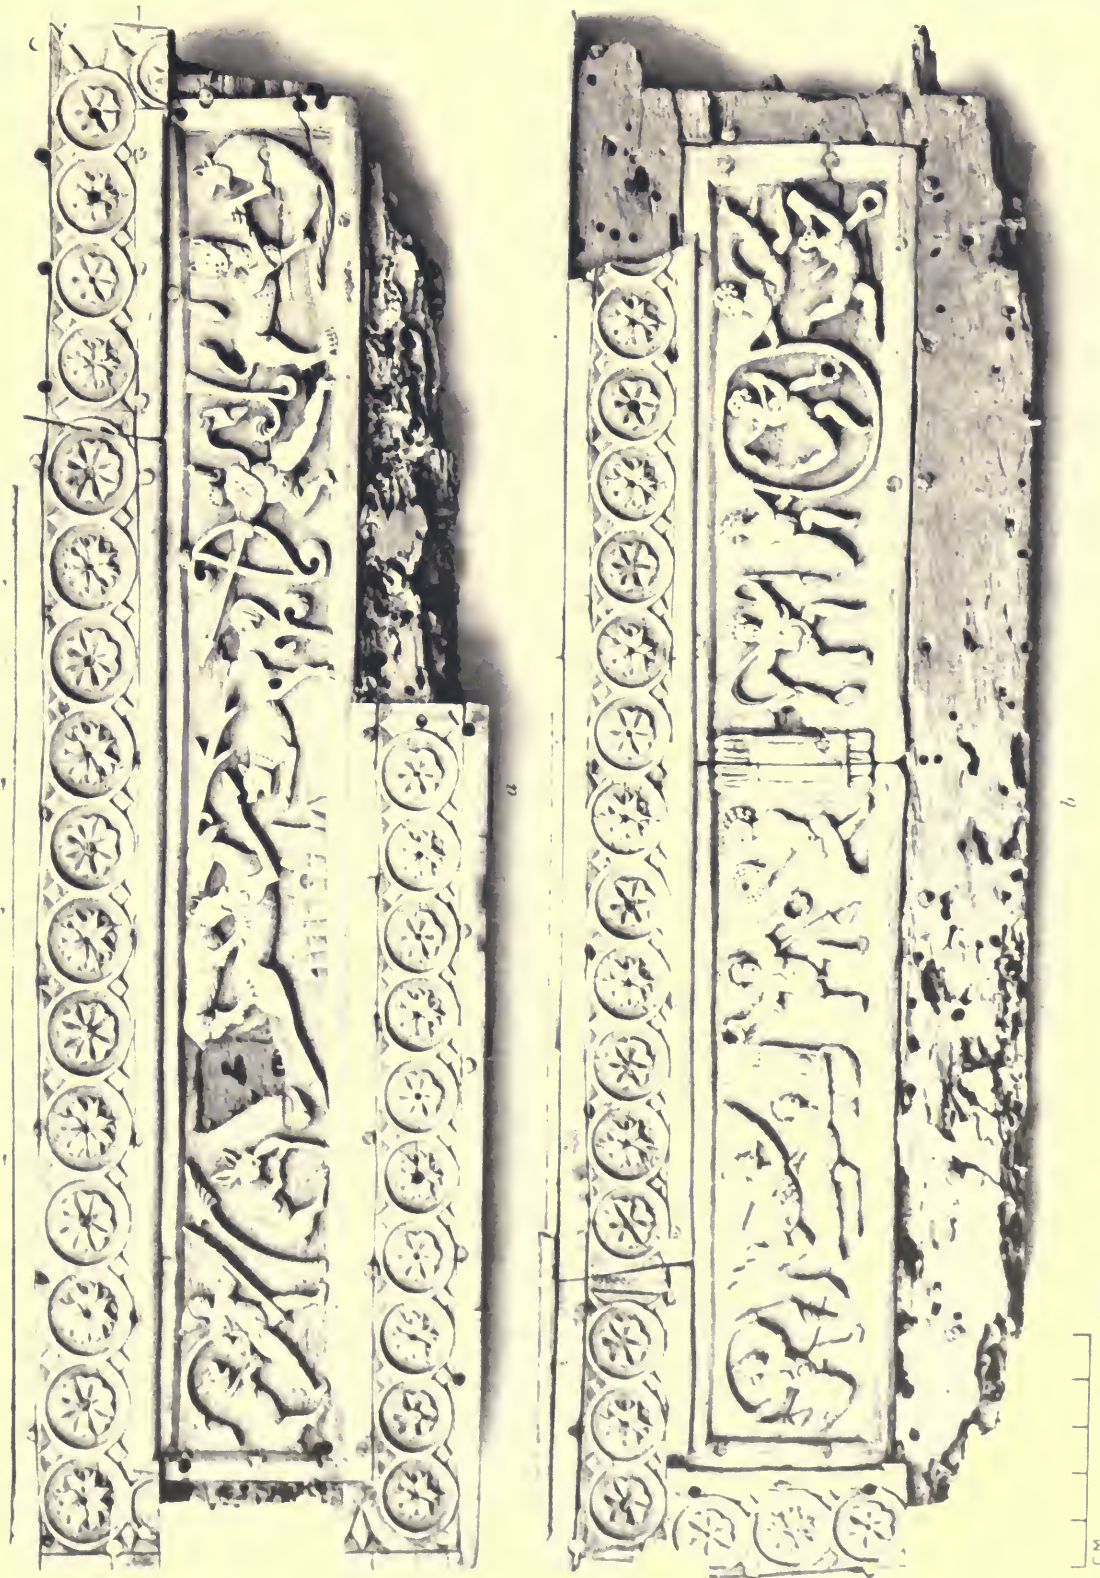 a
b
CM